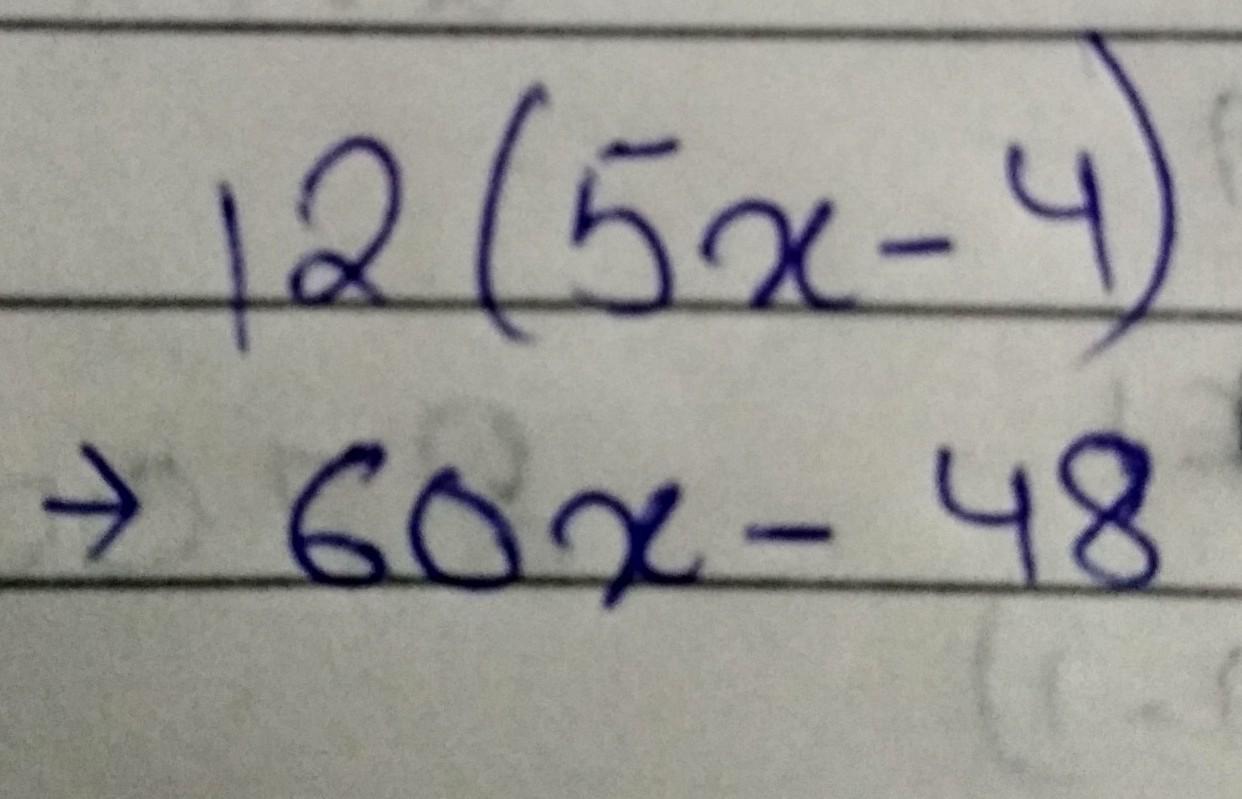 12(5x-4)
→ 60x - 48